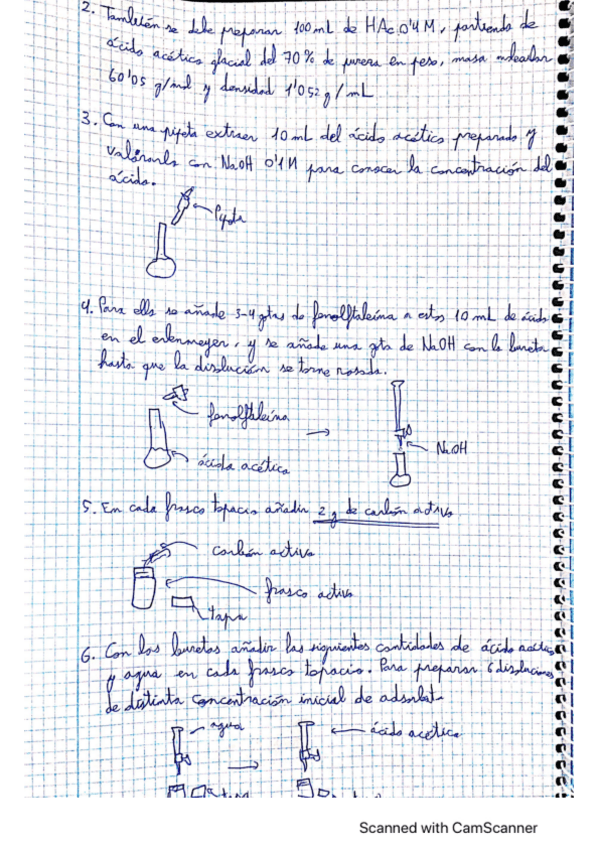 2. También se debe preparar 100 mL de HAc 0'4 M, partiendo de
ácido acético glacial del 70% de pureza en peso, masa molecular
60'05 g/mol y densidad 1'052 g/mL
3. Con una pipeta extraer 10 mL del ácido acético preparado y
valorarlo con NaOH 0'1 M para conocer la concentración del
ácido.
Pipeta
4. Para ello se añade 3-4 gtas de fenolftaleína a estos 10 mL de ácido
en el erlenmeyer, y se añade una gta de NaOH con la bureta
hasta que la disolución se torne rosada.
fenolftaleína
NaOH
ácido acético
5. En cada frasco topacio añadir 2 g de carbón activo
carbón activo
frasco activo
tapa
6. Con las buretas añadir las siguientes cantidades de ácido acético
y agua en cada frasco topacio. Para preparar 6 disoluciones
de distinta concentración inicial de adsorbat
agua
ácido acético
Scanned with CamScanner